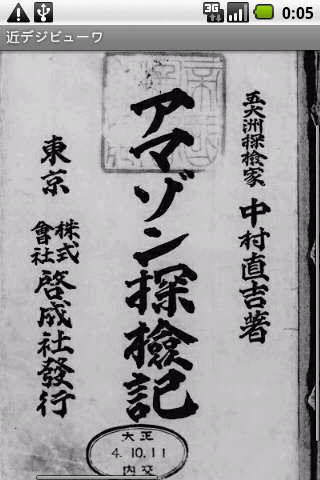 3G
0:05
近デジビューワ
五大洲探檢家 中村直吉著
アマゾン探檢記
東京 株式會社 啓成社發行
大正
4.10.11
内交